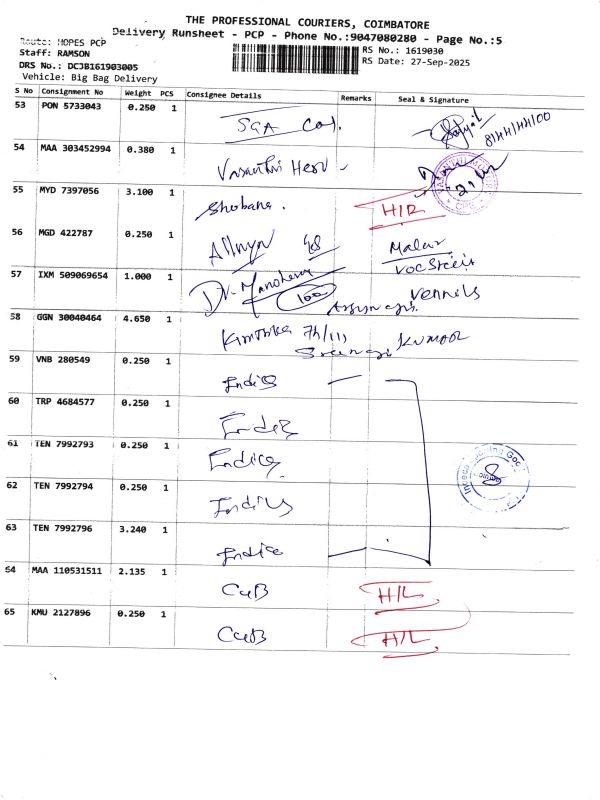 THE PROFESSIONAL COURIERS, COIMBATORE
Delivery Runsheet - PCP - Phone No.:9047080280 - Page No.:5
Route: HOPES PCP
Staff: RAMSON
DRS No.: DCJB161903005
Vehicle: Big Bag Delivery
RS No.: 1619030
RS Date: 27-Sep-2025
S No Consignment No Weight PCS Consignee Details Remarks Seal & Signature
53 PON 5733043 0.250 1
54 MAA 303452994 0.380 1
55 MYD 7397056 3.100 1 Shobana. H/R
56 MGD 422787 0.250 1 Malar
57 IXM 509069654 1.000 1 Dr. Manohara 100
58 GGN 30040464 4.650 1 Kumar
59 VNB 280549 0.250 1 India
60 TRP 4684577 0.250 1 India
61 TEN 7992793 0.250 1 India
62 TEN 7992794 0.250 1 India
63 TEN 7992796 3.240 1 India
64 MAA 110531511 2.135 1 CUB H/L
65 KMU 2127896 0.250 1 CUB H/L